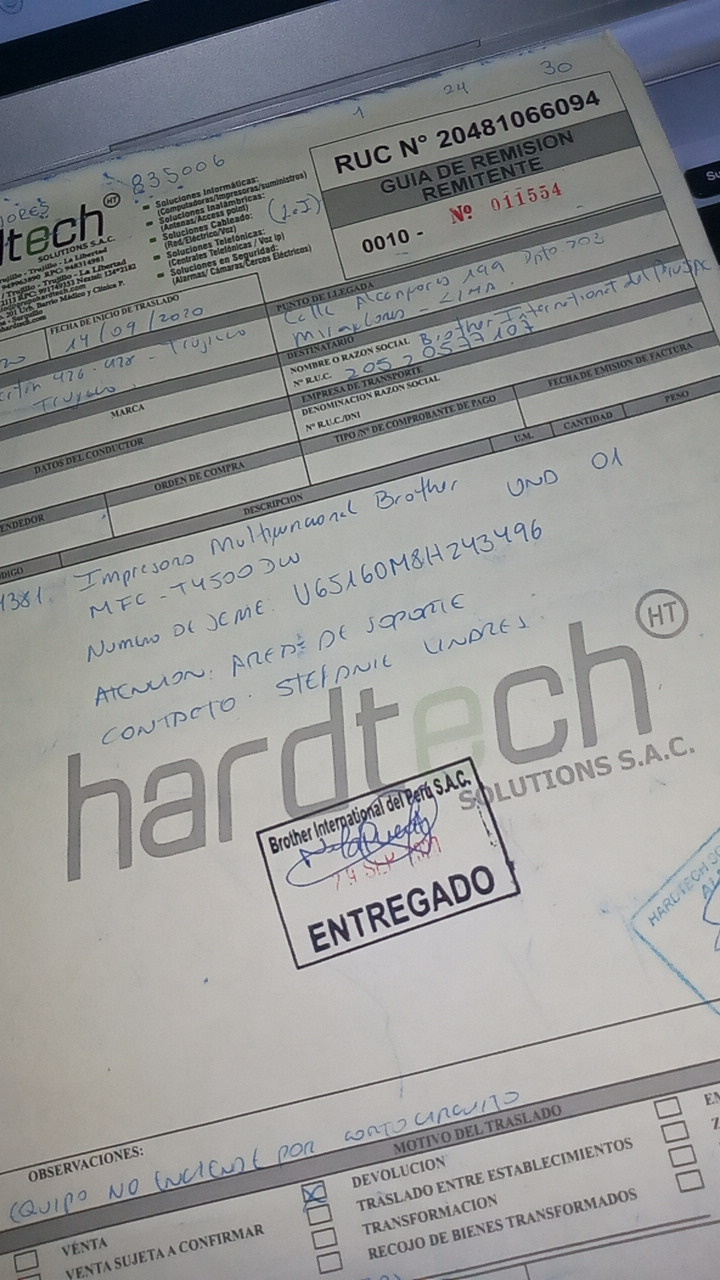 1 24 30
835006
RUC N° 20481066094
GUIA DE REMISION
REMITENTE
0010 - Nº 011554
HT
tech
SOLUTIONS S.A.C.
Soluciones Informáticas:
(Computadoras/Impresoras/suministros)
Soluciones Inalámbricas:
(Antenas/Access point)
Soluciones Cableado:
(Red/Eléctrico/Voz)
Soluciones Telefónicas:
(Centrales Telefónicas / Voz ip)
Soluciones en Seguridad:
(Alarmas/ Cámaras/Cercos Eléctricos)
Trujillo - Trujillo - La Libertad
/ Trujillo - La Libertad
FECHA DE INICIO DE TRASLADO
14/09/2020
PUNTO DE LLEGADA
Calle Alcanfores 199 Dpto 703
Miraflores - LIMA.
476-478 - Trujillo
Trujillo
DESTINATARIO
NOMBRE O RAZON SOCIAL Brother International del Perú SAC
N° R.U.C. 20520577107
MARCA
EMPRESA DE TRANSPORTE
DENOMINACION RAZON SOCIAL
N° R.U.C./DNI
DATOS DEL CONDUCTOR
TIPO /N° DE COMPROBANTE DE PAGO
FECHA DE EMISION DE FACTURA
ENDEDOR
ORDEN DE COMPRA
DESCRIPCION
U.M.
CANTIDAD
PESO
Impresora Multifuncional Brother UND 01
MFC - T4500DW
Numero DE SERIE. U65160M8H243496
ATENCION: AREA DE SOPORTE
CONTACTO. STEFANIE LINARES
HT
hardtech
SOLUTIONS S.A.C.
Brother International del Perú S.A.C.
ENTREGADO
OBSERVACIONES:
EQUIPO NO ENCIENDE POR CORTOCIRCUITO
MOTIVO DEL TRASLADO
VENTA
VENTA SUJETA A CONFIRMAR
DEVOLUCION
TRASLADO ENTRE ESTABLECIMIENTOS
TRANSFORMACION
RECOJO DE BIENES TRANSFORMADOS